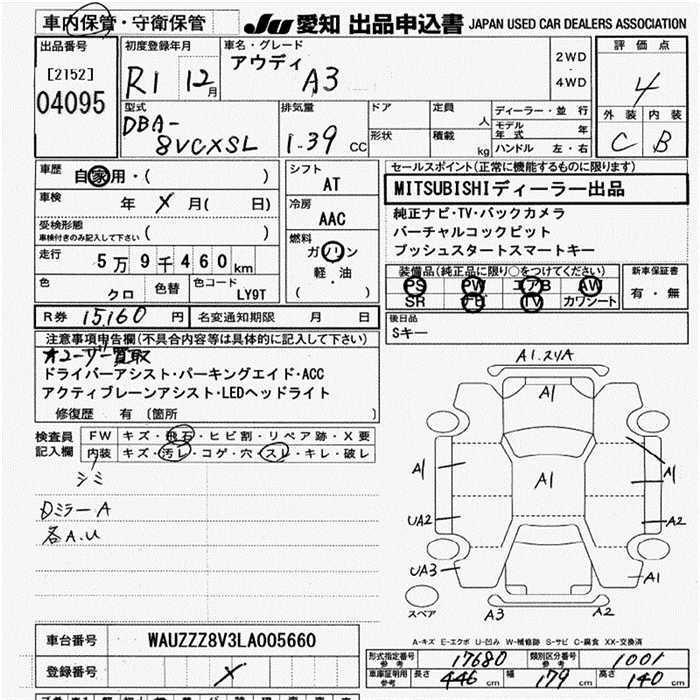 車内保管・守衛保管
JU 愛知 出品申込書 JAPAN USED CAR DEALERS ASSOCIATION
出品番号
[2152]
04095
初度登録年月
R1 12月
車名・グレード
アウディ
A3
2WD
・
4WD
評価点
4
外装 内装
C B
型式
DBA-
8VCXSL
排気量
1.39 CC
ドア
形状
定員 人
積載 kg
ディーラー・並行
モデル年式 年
ハンドル 左・右
車歴
自家用・( )
車検 年 X 月( 日)
受検形態
車検付きのみ記入して下さい ( )
走行
5万9千460km
色 クロ 色替 色コード LY9T
シフト
AT
冷房
AAC
燃料
ガソリン
軽・油
( )
R券 15,160 円 名変通知期限 月 日
セールスポイント(正常に機能するものに限ります)
MITSUBISHIディーラー出品
純正ナビ・TV・バックカメラ
バーチャルコックピット
プッシュスタートスマートキー
装備品(純正品に限り○をつけてください)
PS PW エアB AW
SR ナビ TV カワシート
新車保証書
有・無
後日品
Sキー
注意事項申告欄(不具合内容等は具体的に記入して下さい)
オユーザー買取
ドライバーアシスト・パーキングエイド・ACC
アクティブレーンアシスト・LEDヘッドライト
修復歴 有 〔箇所 〕
検査員
記入欄
FW キズ・飛石・ヒビ割・リペア跡・X要
内装 キズ・汚レ・コゲ・穴・スレ・キレ・破レ
シミ
Dミラー A
各A.U
A1.24A
A1
A1
A1
A1
UA2
A2
UA3
A1
スペア
A3
A2
A-キズ E-エクボ U-凹み W-補修跡 S-サビ C-腐食 XX-交換済
車台番号 WAUZZZ8V3LA005660
登録番号 X
形式指定番号 参考 17680 類別区分番号 参考 1001
車庫証明用 参考 長さ 446 cm 幅 179 cm 高さ 140 cm